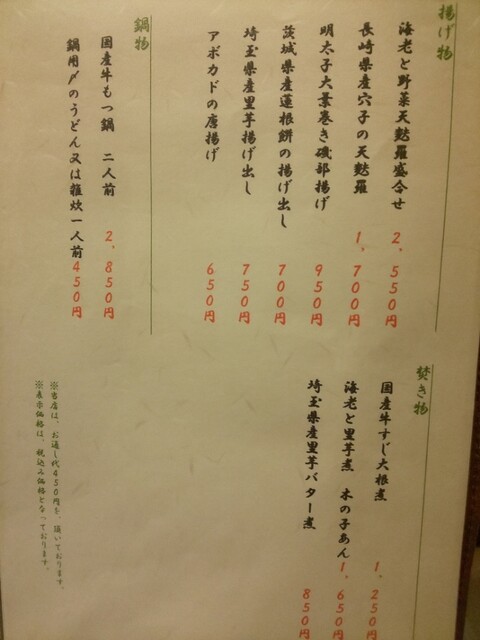 揚げ物
海老と野菜天麩羅盛合せ 2,550円
長崎県産穴子の天麩羅 1,700円
明太子大葉巻き磯部揚げ 950円
茨城県産蓮根餅の揚げ出し 700円
埼玉県産里芋揚げ出し 750円
アボカドの唐揚げ 650円
鍋物
国産牛もつ鍋 二人前 2,850円
鍋用〆のうどん又は雑炊一人前 450円
焚き物
国産牛すじ大根煮 1,250円
海老と里芋煮 木の子あん 1,650円
埼玉県産里芋バター煮 850円
※当店は、お通し代450円を、頂いております。
※表示価格は、税込み価格となっております。